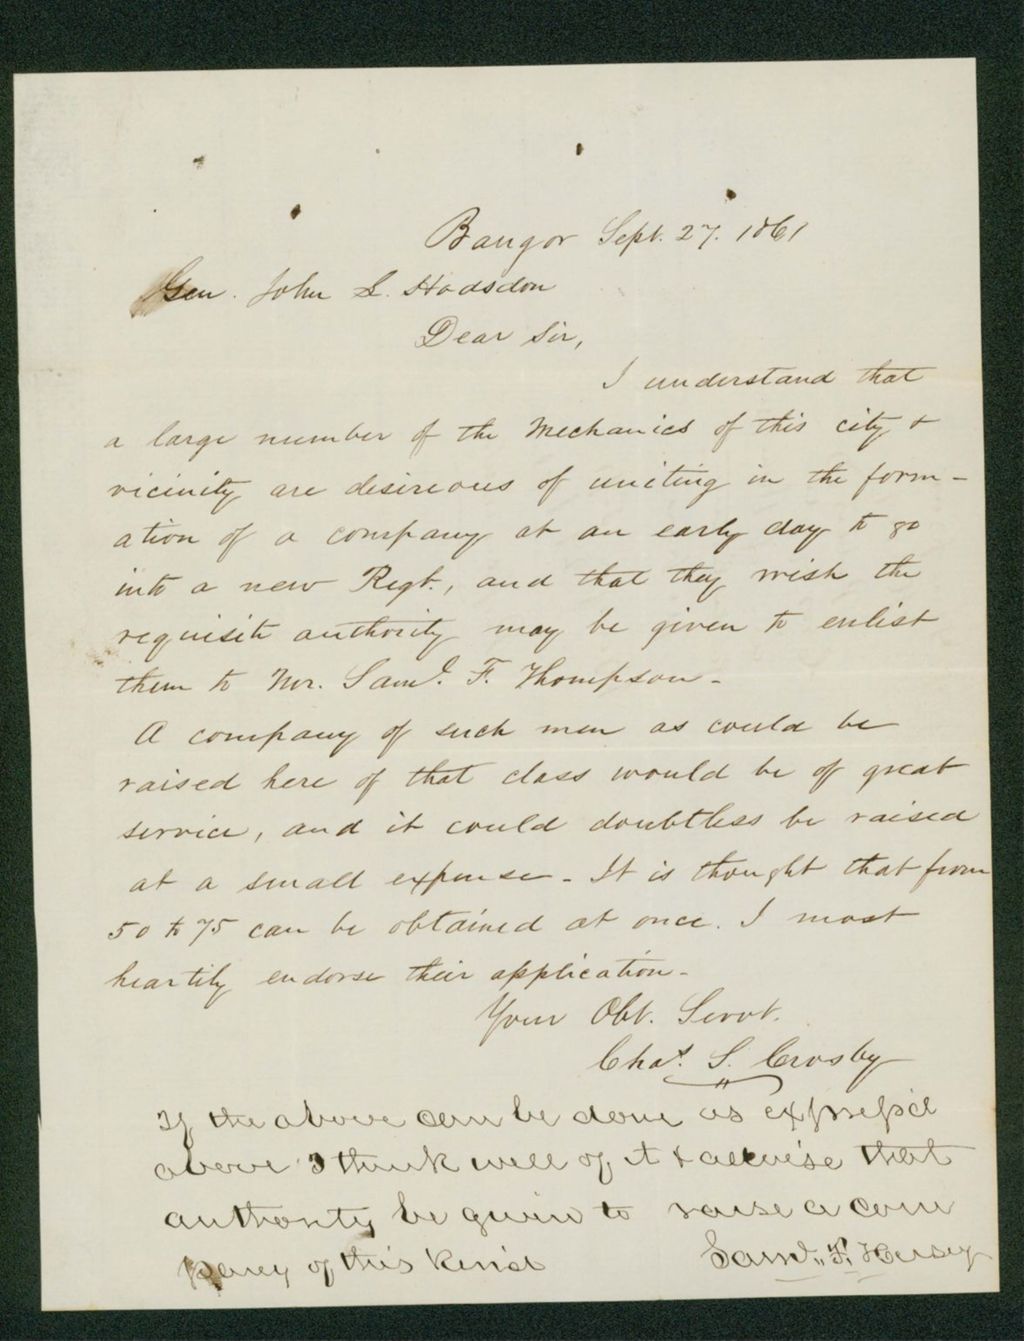 Bangor Sept. 27. 1861
Gen. John L. Hodsdon
Dear Sir,
I understand that
a large number of the Mechanics of this city &
vicinity are desireous of uniting in the form-
ation of a company at an early day to go
into a new Regt., and that they wish the
requisite authority may be given to enlist
them to Mr. Saml. F. Thompson -
A company of such men as could be
raised here of that class would be of great
service, and it could doubtless be raised
at a small expense - It is thought that from
50 to 75 can be obtained at once. I most
heartily endorse their application -
Your Obt. Servt.
Chas. S. Crosby
If the above can be done as express'd
above I think well of it & advise that
authority be given to raise a com
pany of this kind
Saml. F. Hersey